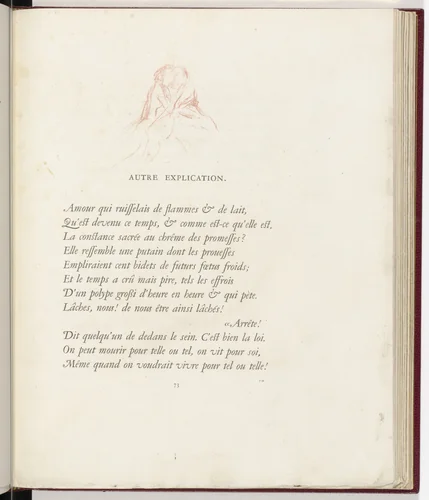 AUTRE EXPLICATION.
Amour qui ruisselais de flammes & de lait,
Qu'est devenu ce temps, & comme est-ce qu'elle est,
La constance sacrée au chrême des promesses?
Elle ressemble une putain dont les prouesses
Empliraient cent bidets de futurs fœtus froids;
Et le temps a crû mais pire, tels les effrois
D'un polype grossi d'heure en heure & qui pète.
Lâches, nous! de nous être ainsi lâchés!
«Arrête!
Dit quelqu'un de dedans le sein. C'est bien la loi.
On peut mourir pour telle ou tel, on vit pour soi,
Même quand on voudrait vivre pour tel ou telle!